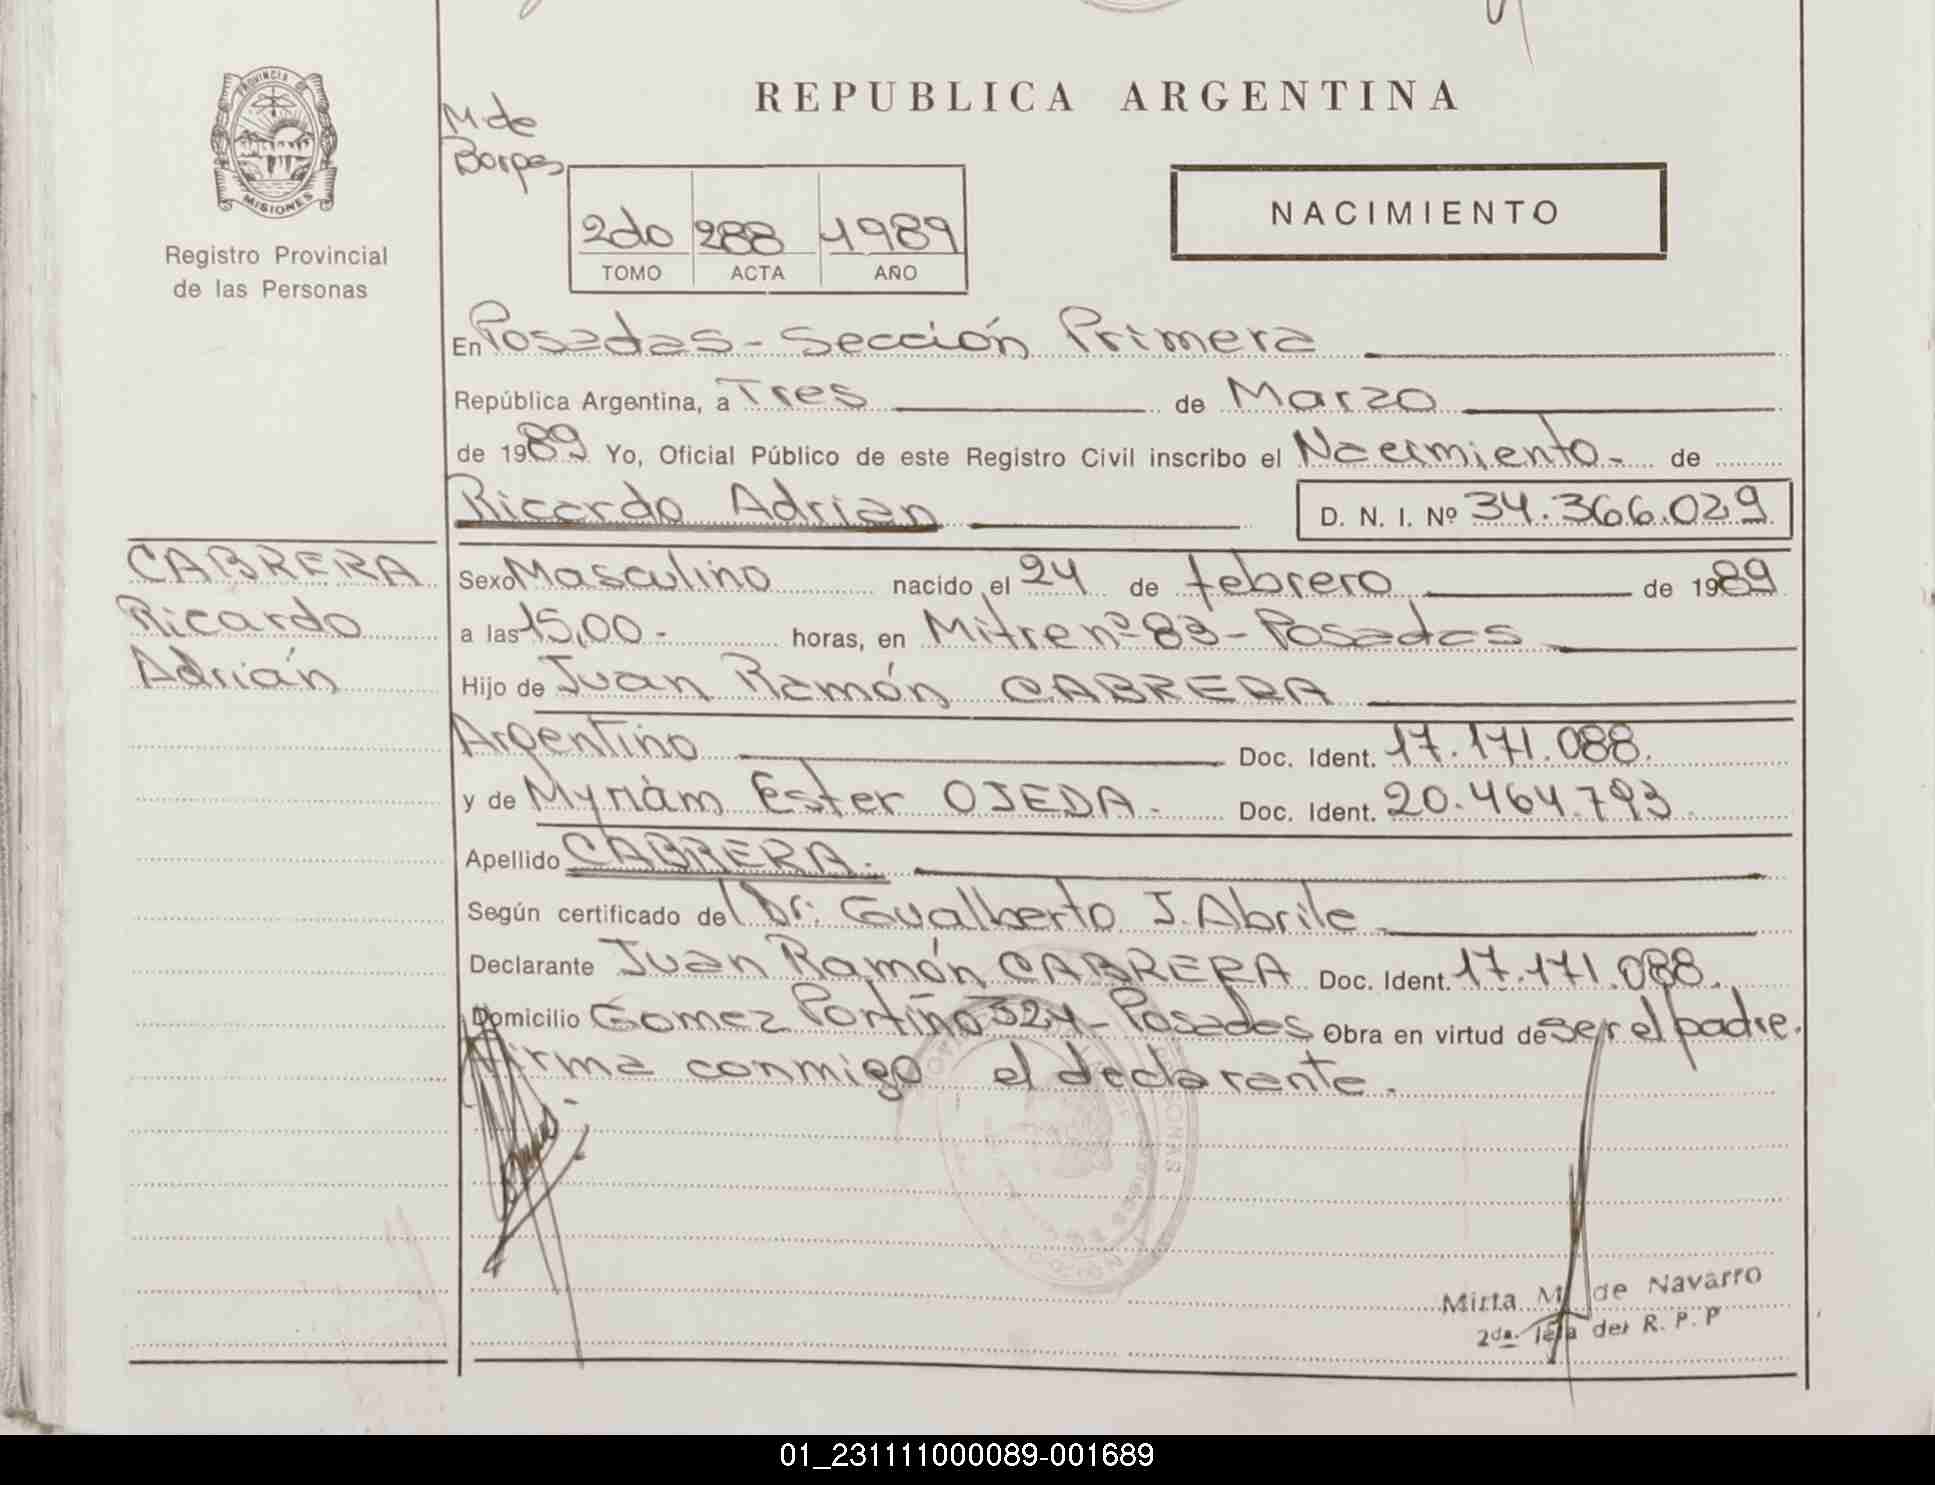 PROVINCIA DE
MISIONES
Registro Provincial
de las Personas
REPUBLICA ARGENTINA
M de
Borges
2do 288 1989
TOMO ACTA AÑO
NACIMIENTO
En Posadas - Sección Primera
República Argentina, a Tres de Marzo
de 1989 Yo, Oficial Público de este Registro Civil inscribo el Nacimiento - de
Ricardo Adrian D. N. I. Nº 34.366.029
CABRERA
Ricardo
Adrián
Sexo Masculino nacido el 24 de febrero de 1989
a las 15,00 - horas, en Mitre nº 83 - Posadas
Hijo de Juan Ramón CABRERA
Argentino Doc. Ident. 17.171.088.
y de Myriam Ester OJEDA - Doc. Ident. 20.464.793
Apellido CABRERA.
Según certificado del Dr. Gualberto J. Abrile
Declarante Juan Ramón CABRERA Doc. Ident. 17.171.088.
Domicilio Gomez Portiño 324 - Posadas Obra en virtud de ser el padre.
firma conmigo el declarante.
Mirta M. de Navarro
2da. Jefa del R. P. P
01_231111000089-001689